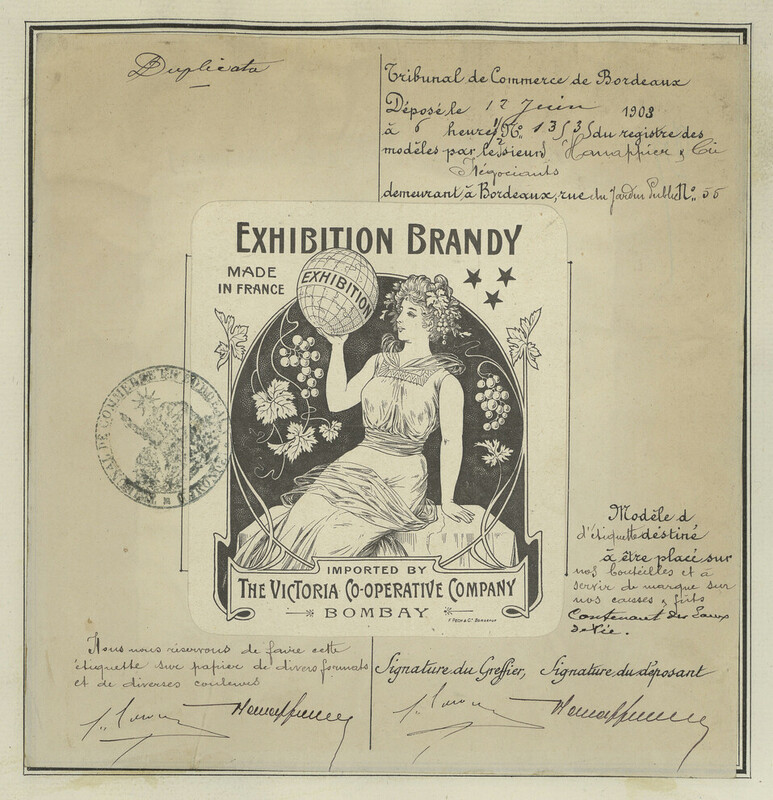 Duplicata
Tribunal de Commerce de Bordeaux
Déposé le 12 Juin 1908
à heures Nº du registre des
modèles par le sieur Hanappier & Cie
Négociants
demeurant à Bordeaux, rue du Jardin Public Nº
EXHIBITION BRANDY
MADE
IN FRANCE
EXHIBITION
TRIBUNAL DE COMMERCE DE BORDEAUX
IMPORTED BY
THE VICTORIA CO-OPERATIVE COMPANY
BOMBAY
Modèle d
d'étiquette destiné
à être placé sur
nos bouteilles et à
servir de marque sur
nos caisses & fûts
Contenant des Eaux
de Vie.
Nous nous réservons de faire cette
étiquette sur papier de divers formats
et de diverses couleurs
Signature du Greffier, Signature du déposant